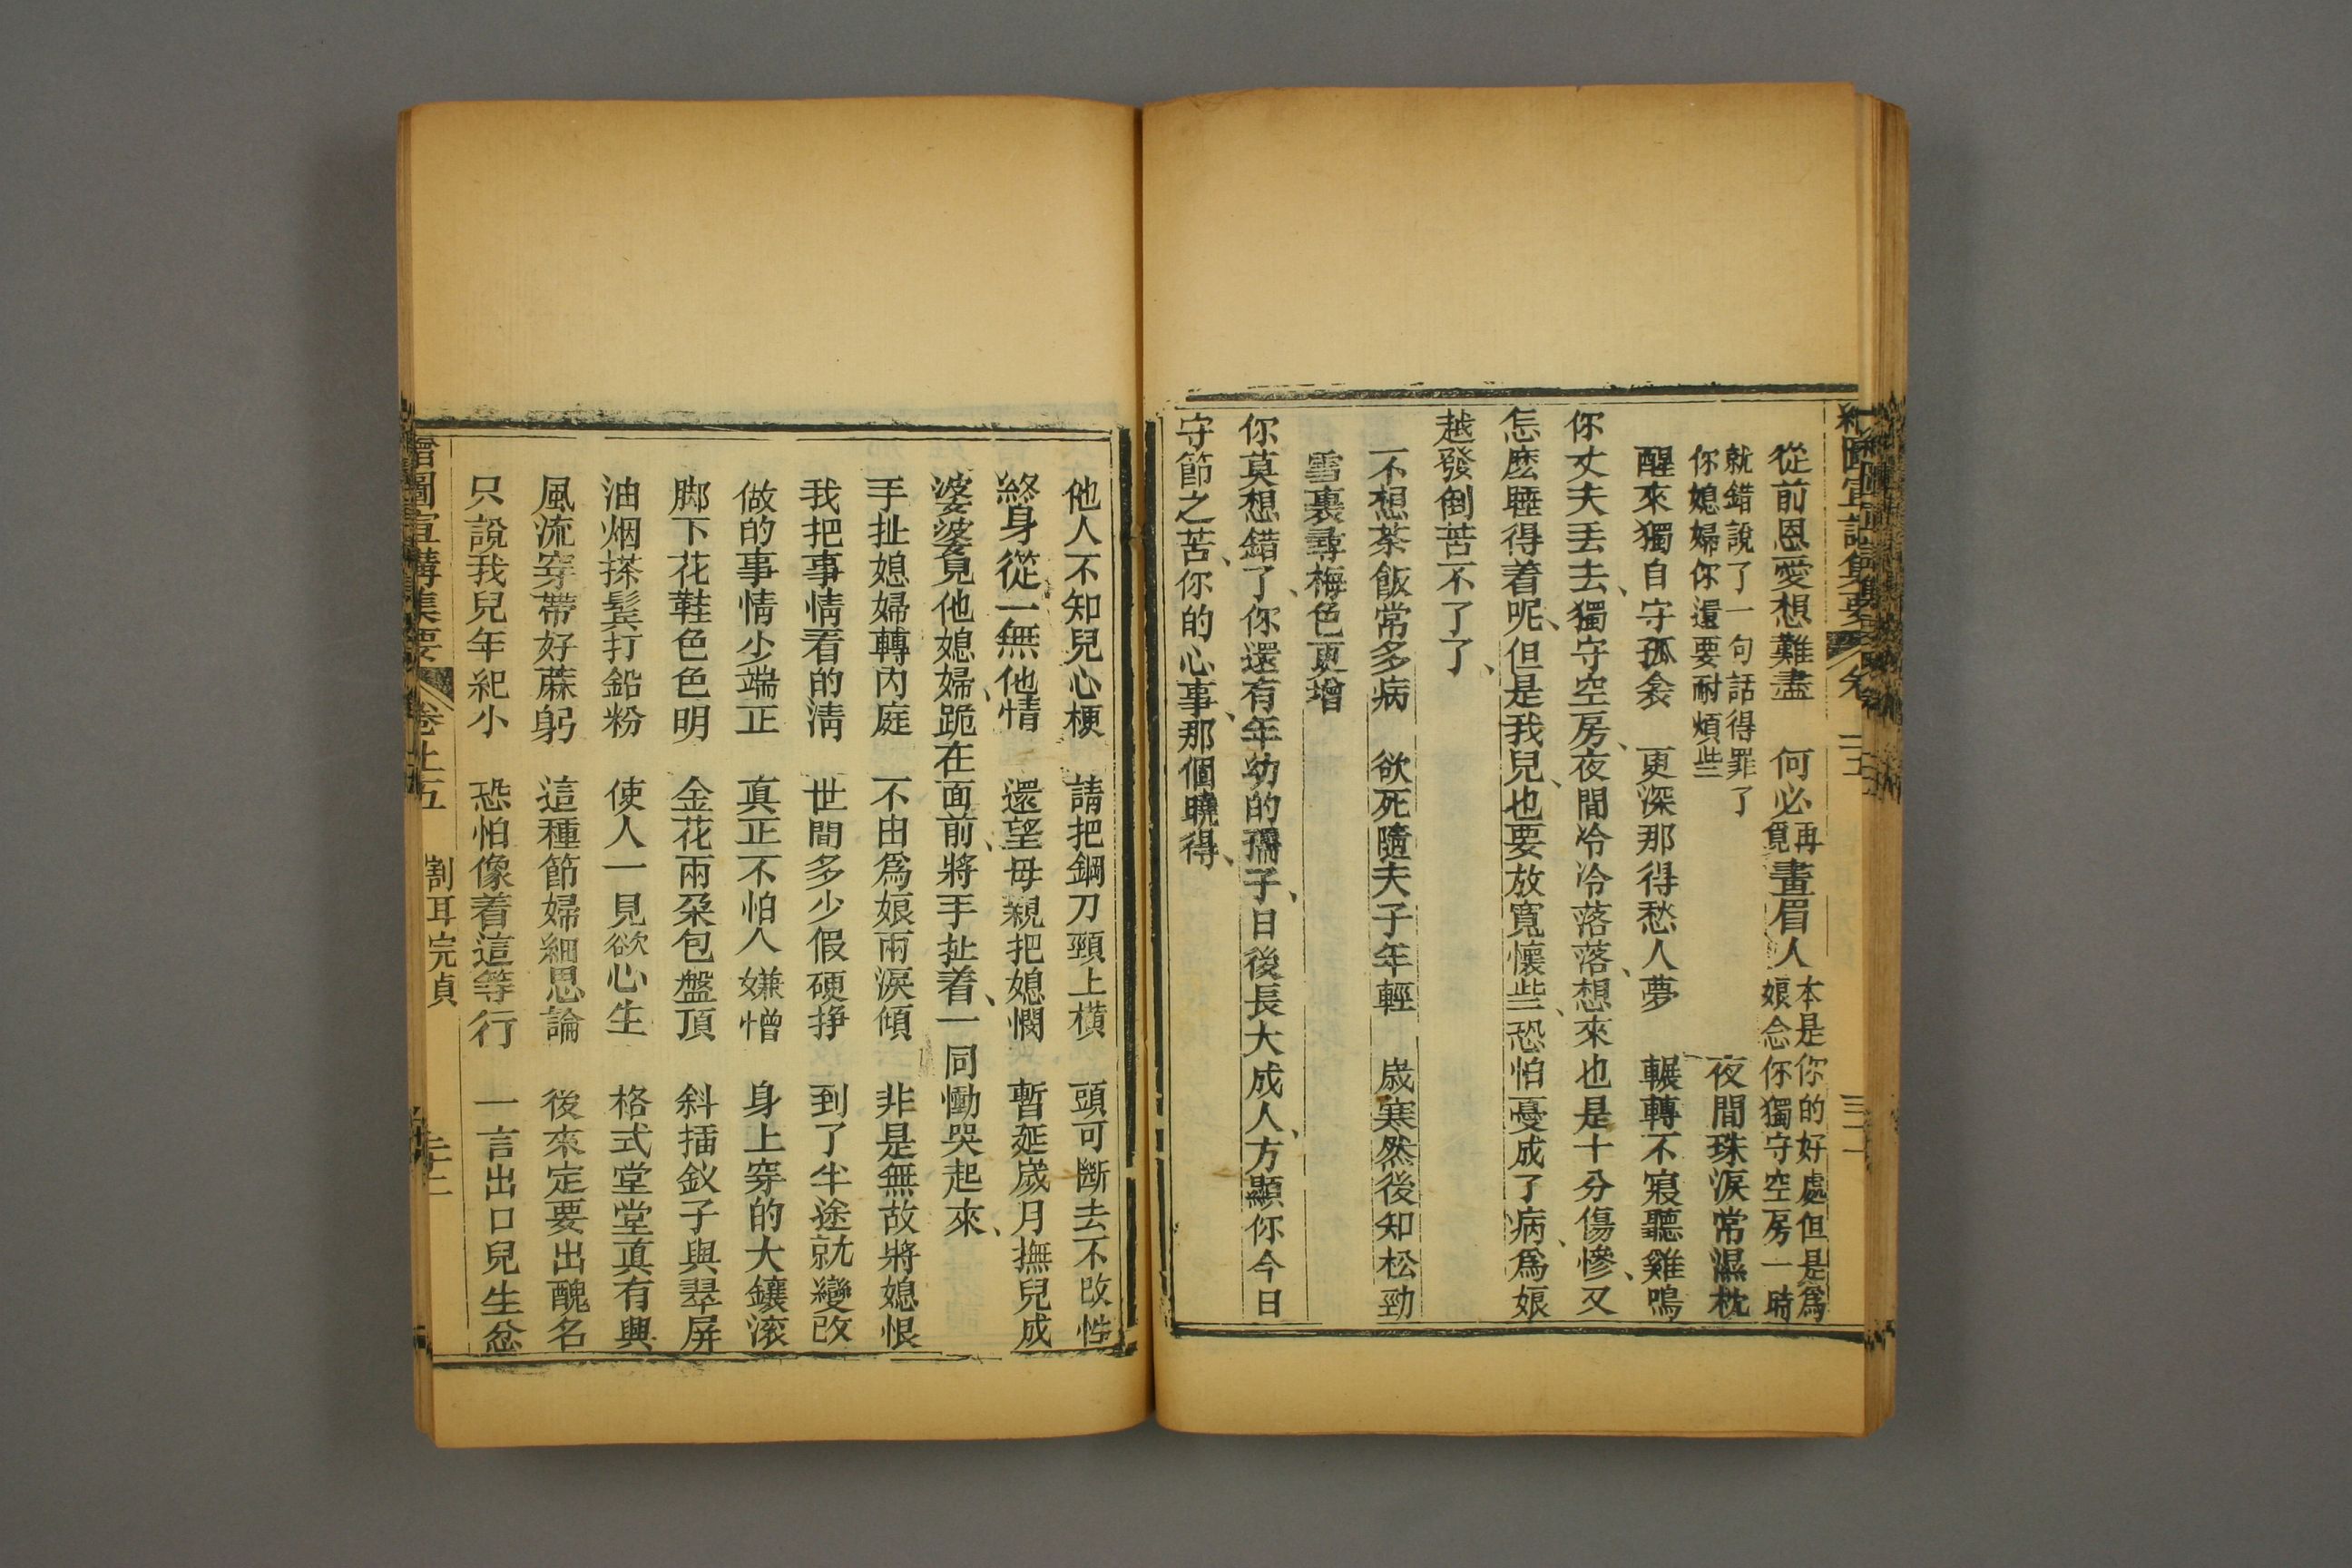 從前恩愛想難盡　何必再覓畫眉人　本是你的好處但是爲娘念你獨守空房一時
就錯說了一句話得罪了你媳婦你還要耐煩些　夜間珠淚常濕枕
醒來獨自守孤衾　更深那得愁人夢　輾轉不寢聽雞鳴
你丈夫丟去、獨守空房、夜間冷冷落落、想來也是十分傷慘、又
怎麽睡得着呢、但是我兒、也要放寬懷些、恐怕憂成了病、爲娘
越發倒苦不了了、
不想茶飯常多病　欲死隨夫子年輕　歲寒然後知松勁
雪裏尋梅色更增
你莫想錯了、你還有年幼的孺子、日後長大成人、方顯你今日
守節之苦、你的心事、那個曉得、
他人不知兒心梗　請把鋼刀頸上橫　頭可斷去不改性
終身從一無他情　還望母親把媳憫　暫延歲月撫兒成
婆婆見他媳婦、跪在面前、將手扯着、一同慟哭起來、
手扯媳婦轉內庭　不由爲娘兩淚傾　非是無故將媳恨
我把事情看的淸　世間多少假硬挣　到了半途就變改
做的事情少端正　真正不怕人嫌憎　身上穿的大鑲滚
脚下花鞋色色明　金花兩朶包盤頂　斜插釵子與翠屏
油烟搽鬂打鉛粉　使人一見欲心生　格式堂堂真有興
風流穿帶好蔴躬　這種節婦細思論　後來定要出醜名
只說我兒年紀小　恐怕像着這等行　一言出口兒生忿
圖宣講集要　卷上五　割耳完貞　三十二